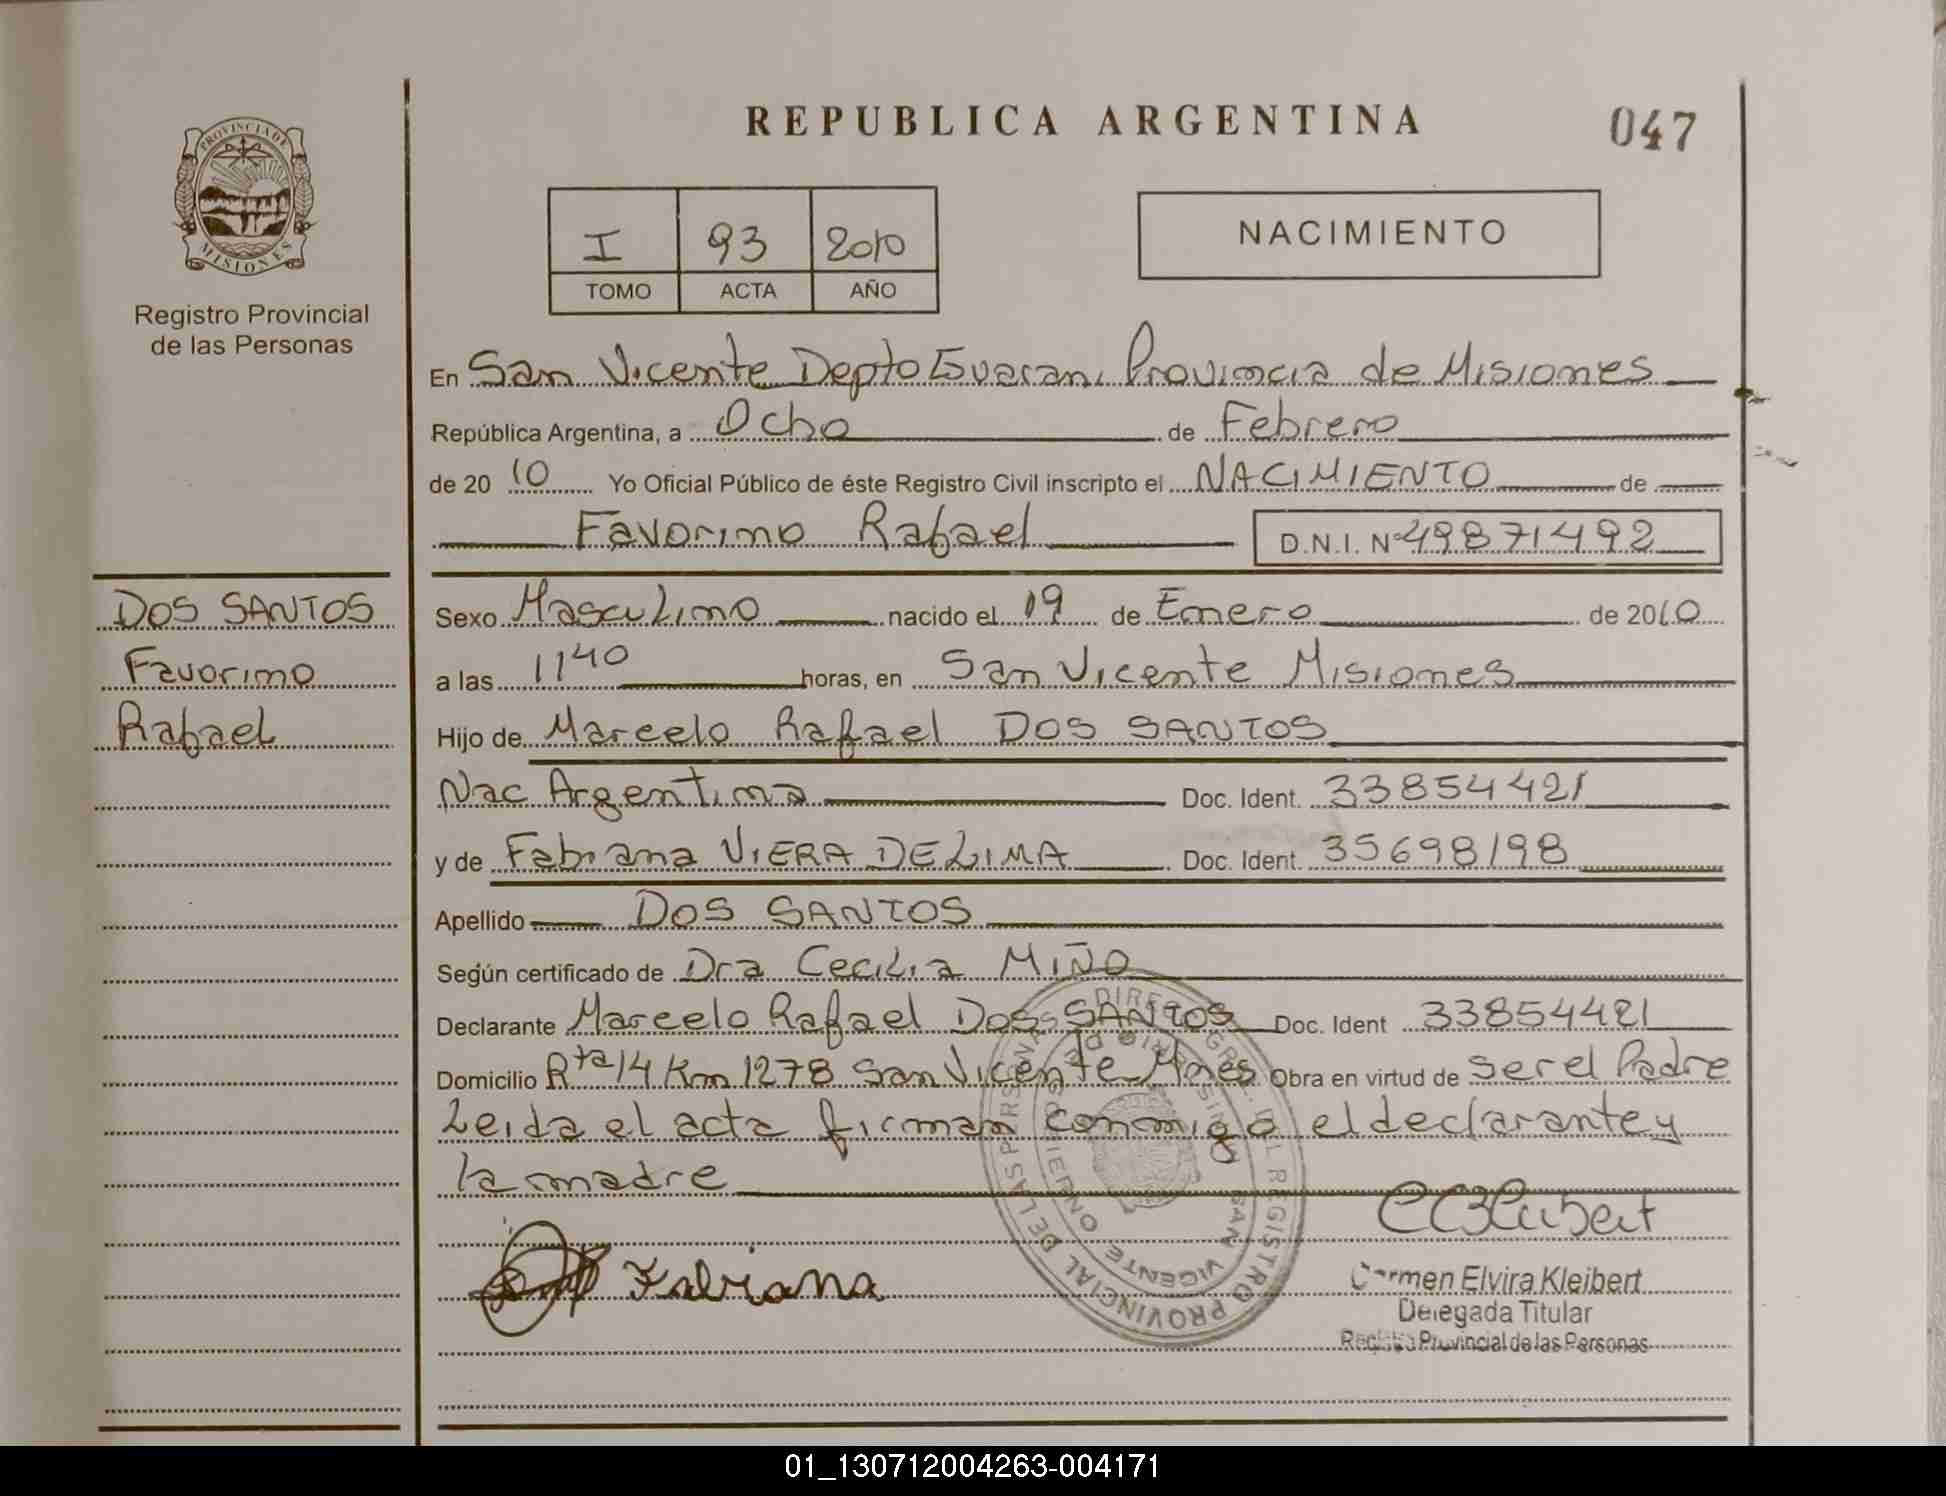 REPUBLICA ARGENTINA
047
PROVINCIA DE
MISIONES
Registro Provincial
de las Personas
I 93 2010
TOMO ACTA AÑO
NACIMIENTO
En San Vicente Depto Guarani Provincia de Misiones
República Argentina, a Ocho de Febrero
de 2010 Yo Oficial Público de éste Registro Civil inscripto el NACIMIENTO de
Favorino Rafael D.N.I. Nº 49871492
DOS SANTOS
Favorino
Rafael
Sexo Masculino nacido el 19 de Enero de 2010
a las 1140 horas, en San Vicente Misiones
Hijo de Marcelo Rafael DOS SANTOS
Nac Argentina Doc. Ident. 33854421
y de Fabiana VIERA DE LIMA Doc. Ident. 35698198
Apellido DOS SANTOS
Según certificado de Dra Cecilia MIÑO
Declarante Marcelo Rafael DOS SANTOS Doc. Ident 33854421
Domicilio Rta 14 Km 1278 San Vicente Mnes Obra en virtud de ser el Padre
Leida el acta firman conmigo el declarante y
la madre
Fabiana
CEKleibert
Carmen Elvira Kleibert
Delegada Titular
Registro Provincial de las Personas
REGISTRO PROVINCIAL DE LAS PERSONAS
GOBIERNO
SAN VICENTE
01_130712004263-004171